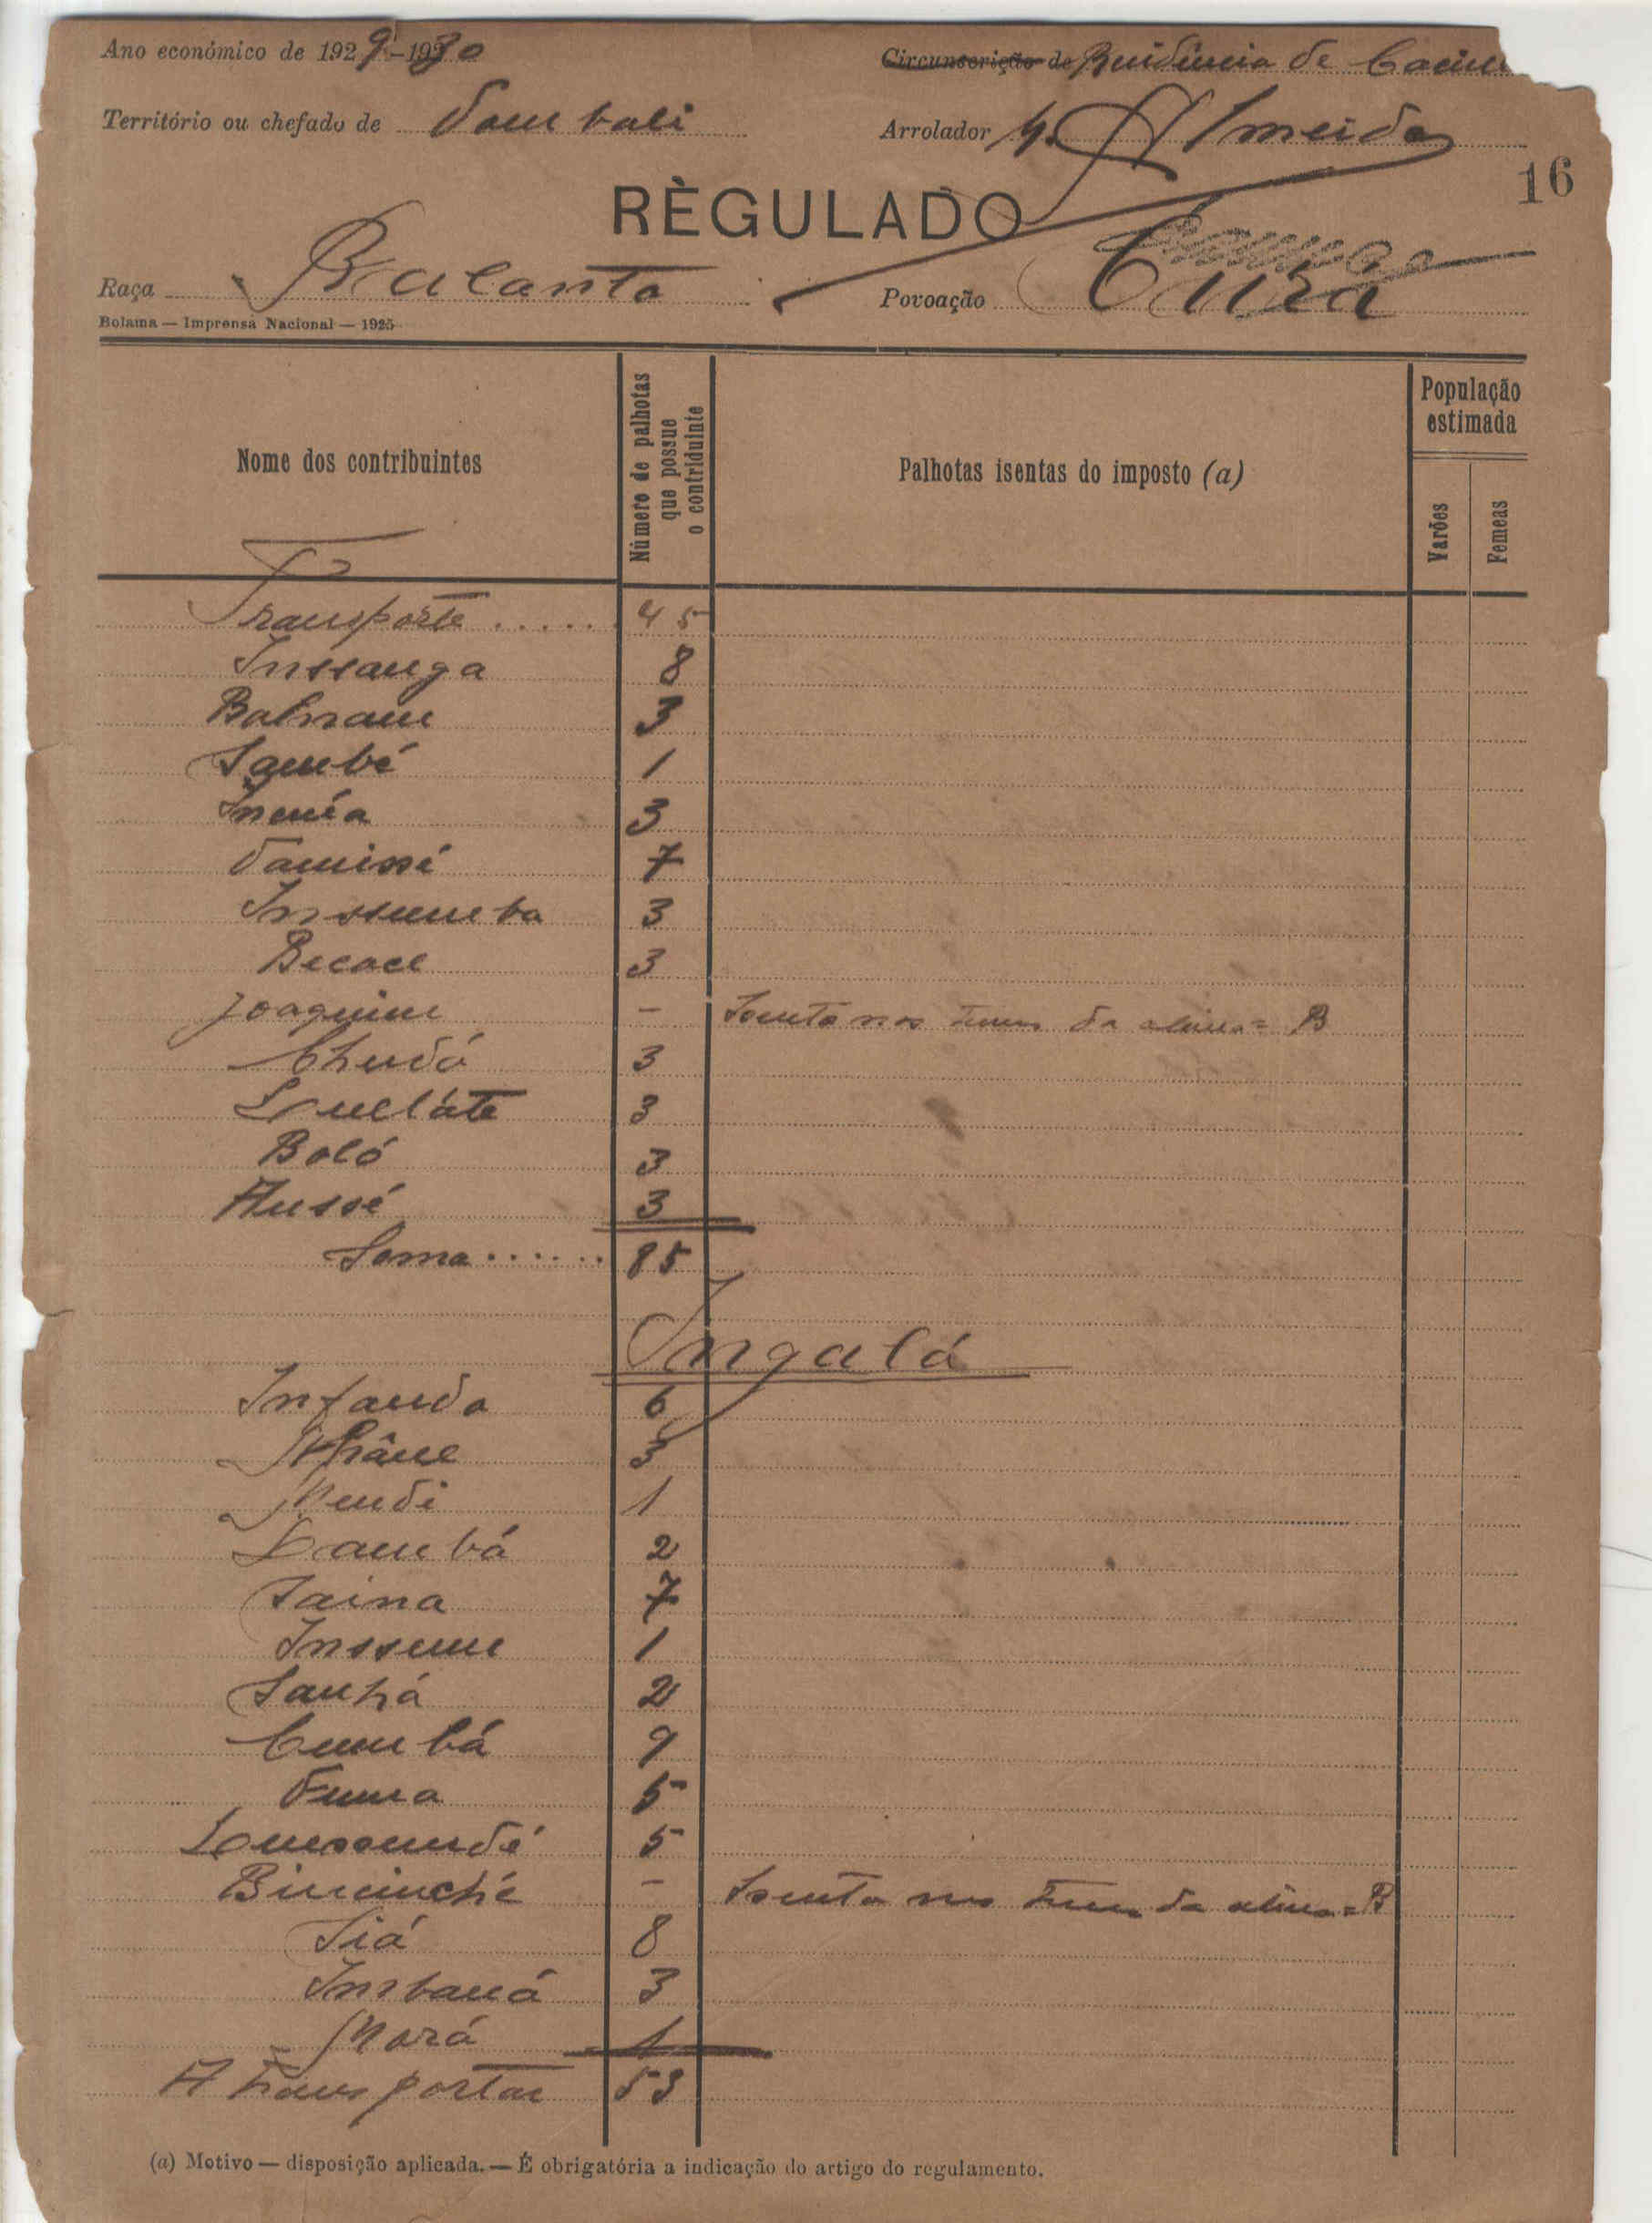 Ano económico de 1929-1930
Circunscrição de Residencia de
Território ou chefado de Tombali
Arrolador Almeida
16
RÈGULADO
Raça Balanta
Povoação
Bolama — Imprensa Nacional — 1925
Nome dos contribuintes
Número de palhotas que possue o contriduinte
Palhotas isentas do imposto (a)
População estimada
Varões
Femeas
Transporte ...... 45
Inssanga 8
3
Sambé 1
3
Tamissé 7
Inssumba 3
3
Joaquim - Isento nos termos da alinea = B
3
3
Boló 3
Aussé 3
Soma ...... 85
Ingalá
Infanda 6
3
1
2
Saina 7
Inssum 1
Sanhá 2
Cumbá 9
Tuma 5
5
- Isento nos termos da alinea = B
Siá 8
3
1
A transportar 53
(a) Motivo — disposição aplicada. — É obrigatória a indicação do artigo do regulamento.